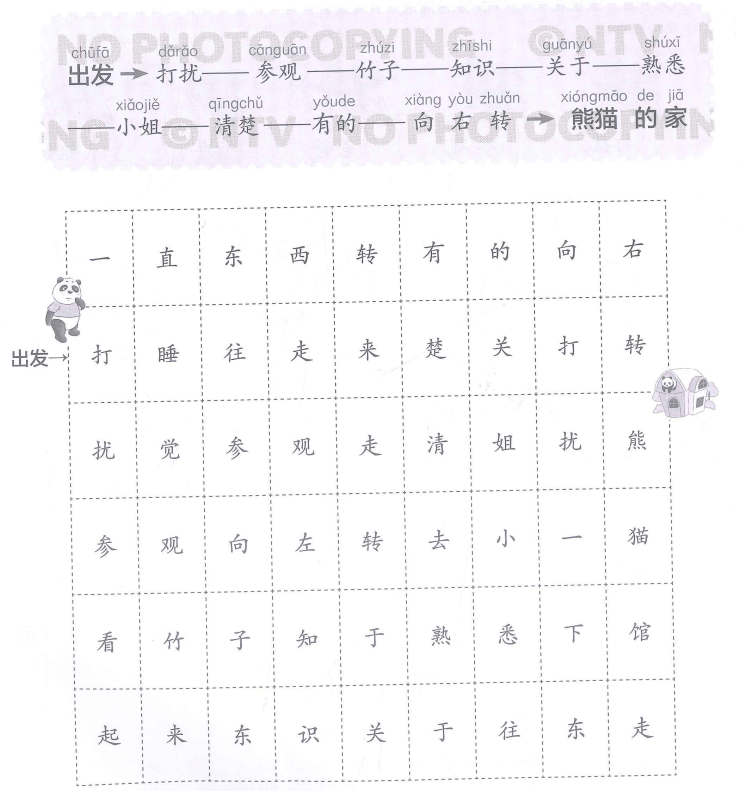 NO PHOTOCOPYING © NTV N
chūfā dǎrǎo cānguān zhúzi zhīshi guānyú shúxī
出发 → 打扰——参观——竹子——知识——关于——熟悉
xiǎojiě qīngchǔ yǒude xiàng yòu zhuǎn xióngmāo de jiā
——小姐——清楚——有的——向 右 转 → 熊猫 的 家
NG © NTV NO PHOTOCOPYING
一 直 东 西 转 有 的 向 右
出发→ 打 睡 往 走 来 楚 关 打 转
扰 觉 参 观 走 清 姐 扰 熊
参 观 向 左 转 去 小 一 猫
看 竹 子 知 于 熟 悉 下 馆
起 来 东 识 关 于 往 东 走